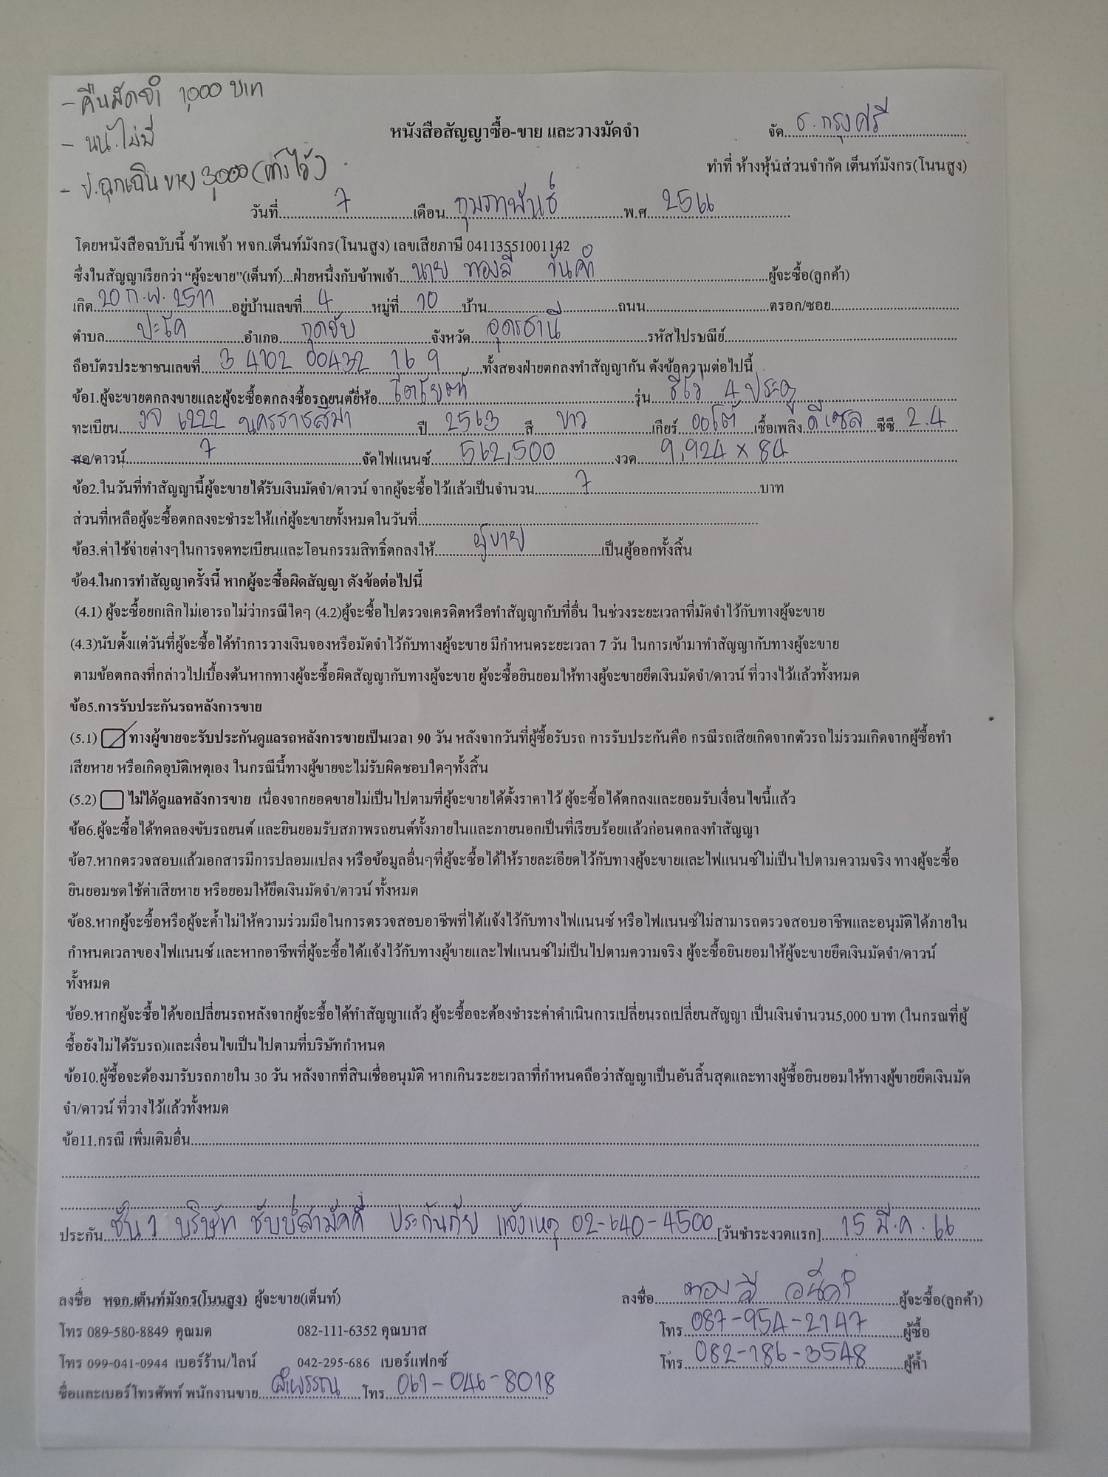 - คืนมัดจำ 1,000 บาท
- นน.ไม่มี
- ป.ฉุกเฉิน ขาย 3,000
หนังสือสัญญาซื้อ-ขาย และวางมัดจำ
จัด ธ.กรุงศรี
ทำที่ ห้างหุ้นส่วนจำกัด เต็นท์มังกร(โนนสูง)
วันที่ 7 เดือน กุมภาพันธ์ พ.ศ. 2566
โดยหนังสือฉบับนี้ ข้าพเจ้า หจก.เต็นท์มังกร(โนนสูง) เลขเสียภาษี 04113551001142
ซึ่งในสัญญาเรียกว่า "ผู้จะขาย"(เต็นท์)...ฝ่ายหนึ่งกับข้าพเจ้า นาย ทองสี วันคำ ผู้จะซื้อ(ลูกค้า)
เกิด 20 ก.พ. 2511 อยู่บ้านเลขที่ 4 หมู่ที่ 10 บ้าน ถนน ตรอก/ซอย
ตำบล ปะโค อำเภอ กุดจับ จังหวัด อุดรธานี รหัสไปรษณีย์
ถือบัตรประชาชนเลขที่ 3 4102 00432 16 9 ทั้งสองฝ่ายตกลงทำสัญญากัน ดังข้อความต่อไปนี้
ข้อ1.ผู้จะขายตกลงขายและผู้จะซื้อตกลงซื้อรถยนต์ยี่ห้อ โตโยต้า รุ่น รีโว่ 4 ประตู
ทะเบียน 6222 นครราชสีมา ปี 2563 สี ขาว เกียร์ ออโต้ เชื้อเพลิง ดีเซล ซีซี 2.4
สด/ดาวน์ 7 จัดไฟแนนซ์ 562,500 งวด 9,924 x 84
ข้อ2.ในวันที่ทำสัญญานี้ผู้จะขายได้รับเงินมัดจำ/ดาวน์ จากผู้จะซื้อไว้แล้วเป็นจำนวน 7 บาท
ส่วนที่เหลือผู้จะซื้อตกลงจะชำระให้แก่ผู้จะขายทั้งหมดในวันที่
ข้อ3.ค่าใช้จ่ายต่างๆในการจดทะเบียนและโอนกรรมสิทธิ์ตกลงให้ ผู้ขาย เป็นผู้ออกทั้งสิ้น
ข้อ4.ในการทำสัญญาครั้งนี้ หากผู้จะซื้อผิดสัญญา ดังข้อต่อไปนี้
(4.1) ผู้จะซื้อยกเลิกไม่เอารถไม่ว่ากรณีใดๆ (4.2)ผู้จะซื้อไปตรวจเครดิตหรือทำสัญญากับที่อื่น ในช่วงระยะเวลาที่มัดจำไว้กับทางผู้จะขาย
(4.3)นับตั้งแต่วันที่ผู้จะซื้อได้ทำการวางเงินจองหรือมัดจำไว้กับทางผู้จะขาย มีกำหนดระยะเวลา 7 วัน ในการเข้ามาทำสัญญากับทางผู้จะขาย
ตามข้อตกลงที่กล่าวไปเบื้องต้นหากทางผู้จะซื้อผิดสัญญากับทางผู้จะขาย ผู้จะซื้อยินยอมให้ทางผู้จะขายยึดเงินมัดจำ/ดาวน์ ที่วางไว้แล้วทั้งหมด
ข้อ5.การรับประกันรถหลังการขาย
(5.1) ทางผู้ขายจะรับประกันดูแลรถหลังการขายเป็นเวลา 90 วัน หลังจากวันที่ผู้ซื้อรับรถ การรับประกันคือ กรณีรถเสียเกิดจากตัวรถไม่รวมเกิดจากผู้ซื้อทำ
เสียหาย หรือเกิดอุบัติเหตุเอง ในกรณีนี้ทางผู้ขายจะไม่รับผิดชอบใดๆทั้งสิ้น
(5.2) ไม่ได้ดูแลหลังการขาย เนื่องจากยอดขายไม่เป็นไปตามที่ผู้จะขายได้ตั้งราคาไว้ ผู้จะซื้อได้ตกลงและยอมรับเงื่อนไขนี้แล้ว
ข้อ6.ผู้จะซื้อได้ทดลองขับรถยนต์ และยินยอมรับสภาพรถยนต์ทั้งภายในและภายนอกเป็นที่เรียบร้อยแล้วก่อนตกลงทำสัญญา
ข้อ7.หากตรวจสอบแล้วเอกสารมีการปลอมแปลง หรือข้อมูลอื่นๆที่ผู้จะซื้อได้ให้รายละเอียดไว้กับทางผู้จะขายและไฟแนนซ์ไม่เป็นไปตามความจริง ทางผู้จะซื้อ
ยินยอมชดใช้ค่าเสียหาย หรือยอมให้ยึดเงินมัดจำ/ดาวน์ ทั้งหมด
ข้อ8.หากผู้จะซื้อหรือผู้จะค้ำไม่ให้ความร่วมมือในการตรวจสอบอาชีพที่ได้แจ้งไว้กับทางไฟแนนซ์ หรือไฟแนนซ์ไม่สามารถตรวจสอบอาชีพและอนุมัติได้ภายใน
กำหนดเวลาของไฟแนนซ์ และหากอาชีพที่ผู้จะซื้อได้แจ้งไว้กับทางผู้ขายและไฟแนนซ์ไม่เป็นไปตามความจริง ผู้จะซื้อยินยอมให้ผู้จะขายยึดเงินมัดจำ/ดาวน์
ทั้งหมด
ข้อ9.หากผู้จะซื้อได้ขอเปลี่ยนรถหลังจากผู้จะซื้อได้ทำสัญญาแล้ว ผู้จะซื้อจะต้องชำระค่าดำเนินการเปลี่ยนรถเปลี่ยนสัญญา เป็นเงินจำนวน5,000 บาท (ในกรณที่ผู้
ซื้อยังไม่ได้รับรถ)และเงื่อนไขเป็นไปตามที่บริษัทกำหนด
ข้อ10.ผู้ซื้อจะต้องมารับรถภายใน 30 วัน หลังจากที่สินเชื่ออนุมัติ หากเกินระยะเวลาที่กำหนดถือว่าสัญญาเป็นอันสิ้นสุดและทางผู้ซื้อยินยอมให้ทางผู้ขายยึดเงินมัด
จำ/ดาวน์ ที่วางไว้แล้วทั้งหมด
ข้อ11.กรณี เพิ่มเติมอื่น
ประกัน ชั้น 1 บริษัท ชับบ์สามัคคี ประกันภัย แจ้งเหตุ 02-640-4500 [วันชำระงวดแรก] 15 มี.ค. 66
ลงชื่อ หจก.เต็นท์มังกร(โนนสูง) ผู้จะขาย(เต็นท์)
ลงชื่อ ทองสี วันคำ ผู้จะซื้อ(ลูกค้า)
โทร 089-580-8849 คุณมด 082-111-6352 คุณบาส
โทร 087-954-2147 ผู้ซื้อ
โทร 099-041-0944 เบอร์ร้าน/ไลน์ 042-295-686 เบอร์แฟกซ์
โทร 082-186-3548 ผู้ค้ำ
ชื่อและเบอร์โทรศัพท์ พนักงานขาย ลำพรรณ โทร 061-046-8018